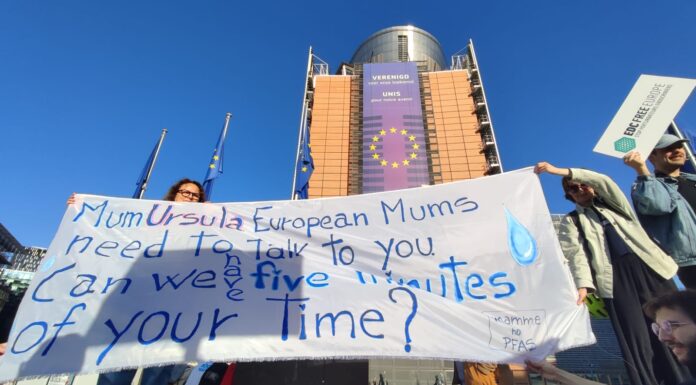 VERENIGD
voor onze toekomst
UNIS
pour notre avenir
EDC FREE EUROPE
Mum Ursula European Mums
need to Talk to you
Can we have five minutes
of your Time?
mamme
no
PFAS